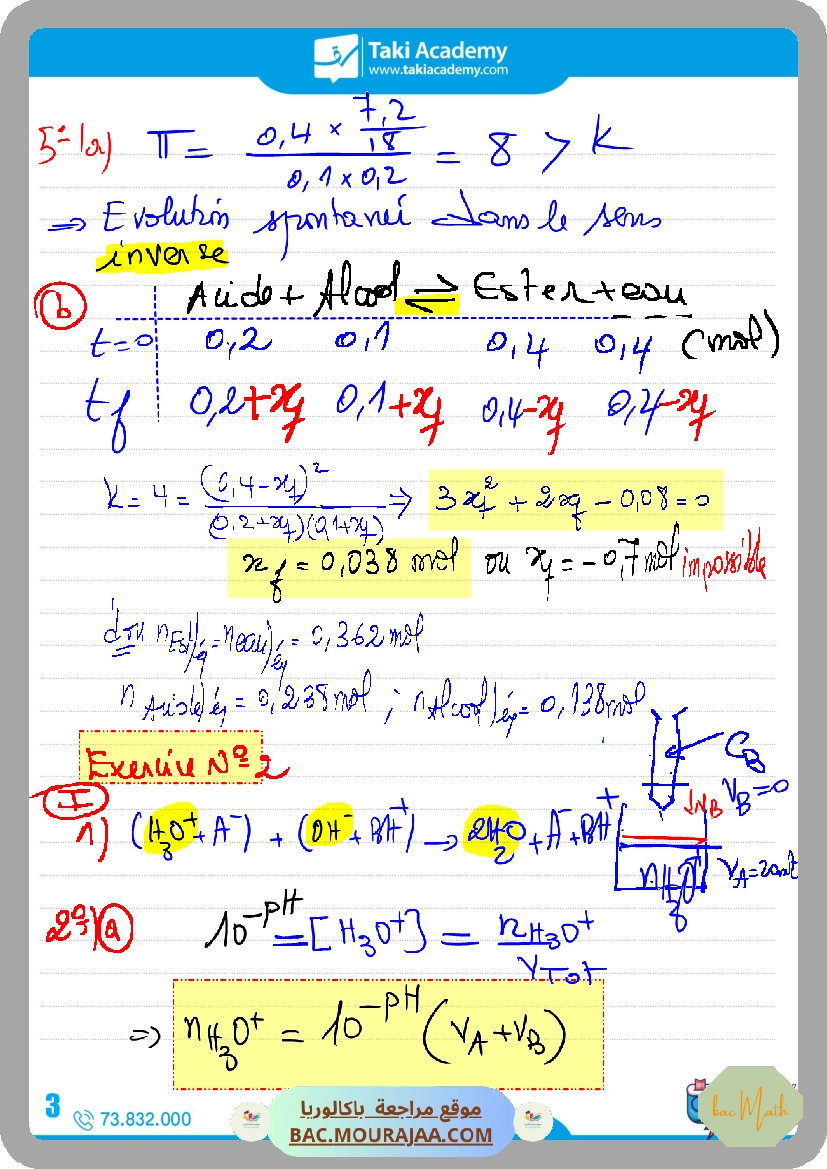 Taki Academy
www.takiacademy.com
5°-1a) π = (0,4 × 7,2/18) / (0,1 × 0,2) = 8 > K
⇒ Evolution spontanéé dans le sens
inverse
b Acide + Alcool ⇌ Ester + eau
t=0 0,2 0,1 0,4 0,4 (mol)
tf 0,2+xf 0,1+xf 0,4-xf 0,4-xf
K = 4 = (0,4-xf)² / (0,2+xf)(0,1+xf) ⇒ 3xf² + 2xf - 0,08 = 0
xf = 0,038 mol ou xf = -0,7 mol impossible
d'où nEst)éq = neau)éq = 0,362 mol
nAcide)éq = 0,238 mol ; nAlcool)éq = 0,138 mol
Exercice N°2
CB
VB=0
↓VB
I
1) (H3O⁺ + A⁻) + (OH⁻ + BH⁺) → 2H2O + A⁻ + BH⁺
nH3O⁺
VA=20mL
2°/a 10^-pH = [H3O⁺] = nH3O⁺ / VTot
⇒ nH3O⁺ = 10^-pH (VA + VB)
3
73.832.000
موقع مراجعة باكالوريا
BAC.MOURAJAA.COM
bac Math